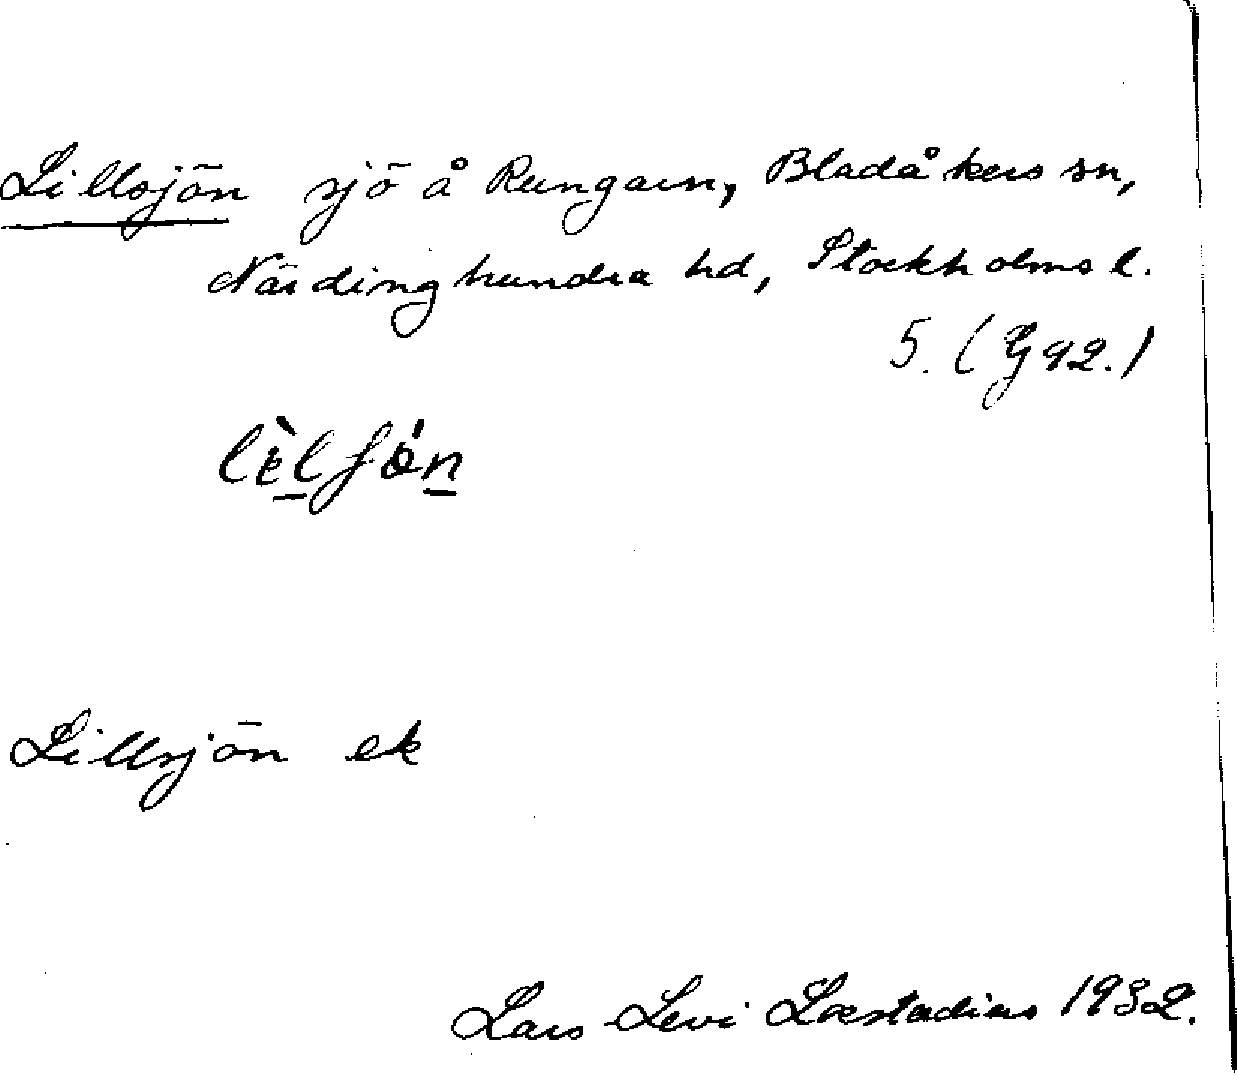 Lillsjön sjö å Rungarn, Bladåkers sn,
Närdinghundra hd, Stockholms l.
5. (G 92.)
lèlʃön
Lillsjön ek
Lars Levi Læstadius 1932.